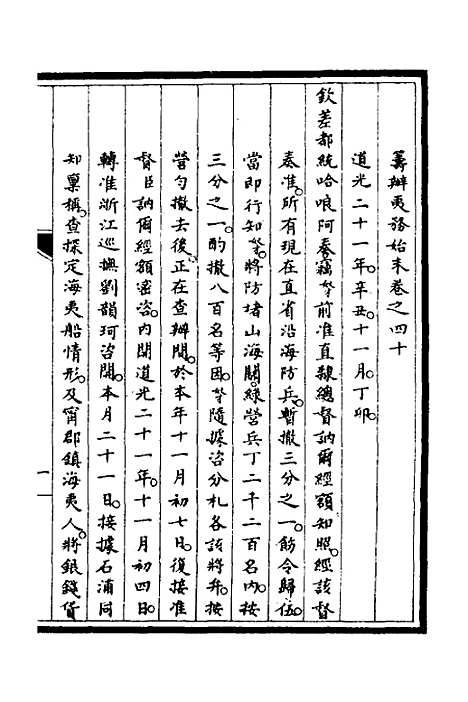 籌辦夷務始末卷之四十
道光二十一年。辛丑。十一月。丁卯。
欽差都統哈哴阿奏。竊夲前准直隸總督訥爾經額知照。經該督
奏准。所有現在直省沿海防兵。暫撤三分之一。飭令歸伍。
當即行知夲。將防堵山海關。綠營兵丁二千二百名內。按
三分之一。酌撤八百名等因。夲隨據咨分札各該將弁。按
營勻撤去後。正在查辦間。於本年十一月初七日。復接准
督臣訥爾經額密咨。內開道光二十一年。十一月初四日。
轉准浙江巡撫劉韻珂咨開。本月二十一日。接據石浦同
知稟稱。查探定海夷船情形。及甯郡鎮海夷人。將銀錢貨
一